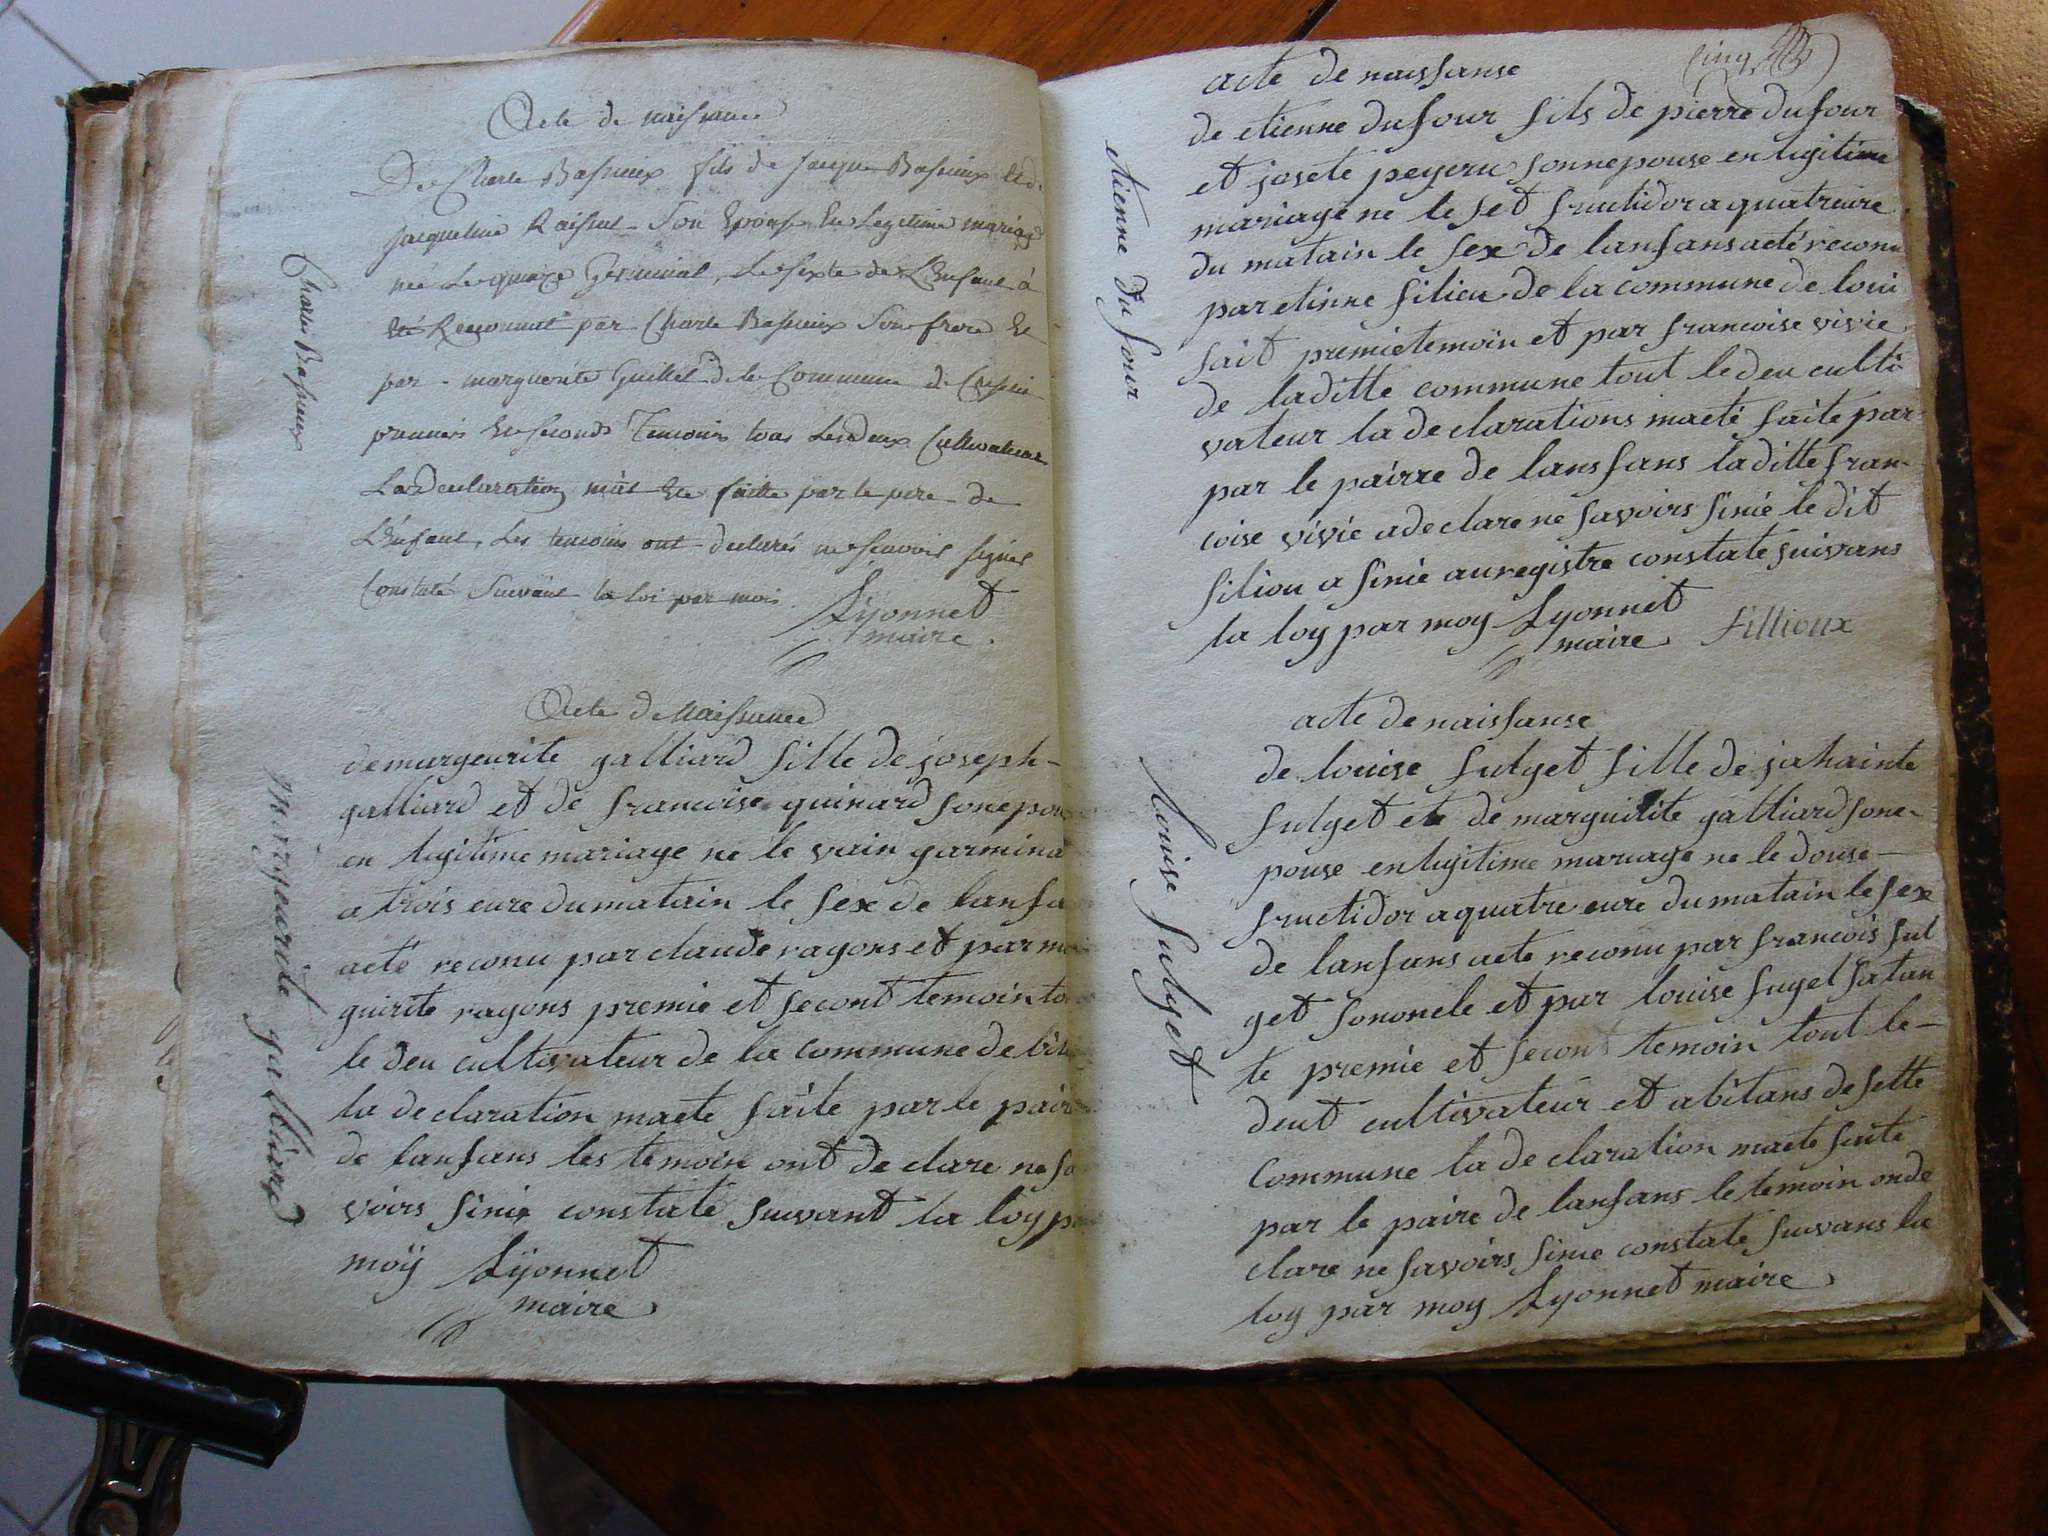 Acte de naissance
De Charle Bassieux fils de Jacque Bassieux et de
jacqueline Son Epouse En Legitime mariage
née Le quinze Germinal, Le sexte de L'Enfant à
été Reconnut par Charle Bassieux Son frere Et
par marguerite Guillet de la Commune de
premier Et second Temoins tous Les deux Cultivateur
La Declaration m'at Ete faitte par le pere de
L'Enfant, Les temoins ont declarés ne scavoir signer
Constaté Suivant la loi par moi
Lyonnet
maire
Charles Bassieux
Acte de Naissance
de margeurite galliard fille de joseph
galliard et de francoise guinard sonepou
en legitime mariage ne le vain garmina
a trois eure du matain le sex de lanfa
acté reconu par claude ragons et par ma
guirite ragons premie et secont temoin to
le deu cultivateur de la commune de
la declaration macte faite par le pair
de lanfans les temoin ont de clare ne sa
voirs sinie constate suivant la loy p
moÿ Lÿonnet
maire
Margeurite galliard
cinq
acte de naissanse
de etienne dufour fils de pierre dufour
et josete peyeru sonnepouse en legitime
mariage ne le set fructidor a quatreure
du matain le sex de lanfans acté reconu
par etinne filiou de la commune de loui
fait premietemoin et par francoise vivie
de laditte commune tout le deu culti
vateur la declarations macté faite par
par le pairre de lansfans laditte fran-
coise vivie adeclare ne savoirs sinié le dit
filiou a sinié auregistre constate suivans
la loy par moy Lyonnet
maire fillioux
etienne du four
acte de naissanse
de louise sulget fille de jahainte
sulget ete de marguirite galliard sone-
pouse en legitime mariage ne le douse
fructidor a quatre eure du matain le sex
de lanfans acte reconu par francois sul
get sononcle et par louise suget satan
te premie et secont temoin tout le
deut cultivateur et abitans de sette
commune la de claration macte faite
par le paire de lanfans le temoin onde
clare ne savoirs sinie constate suivans la
loy par moy Lyonnet maire
Louise sulget